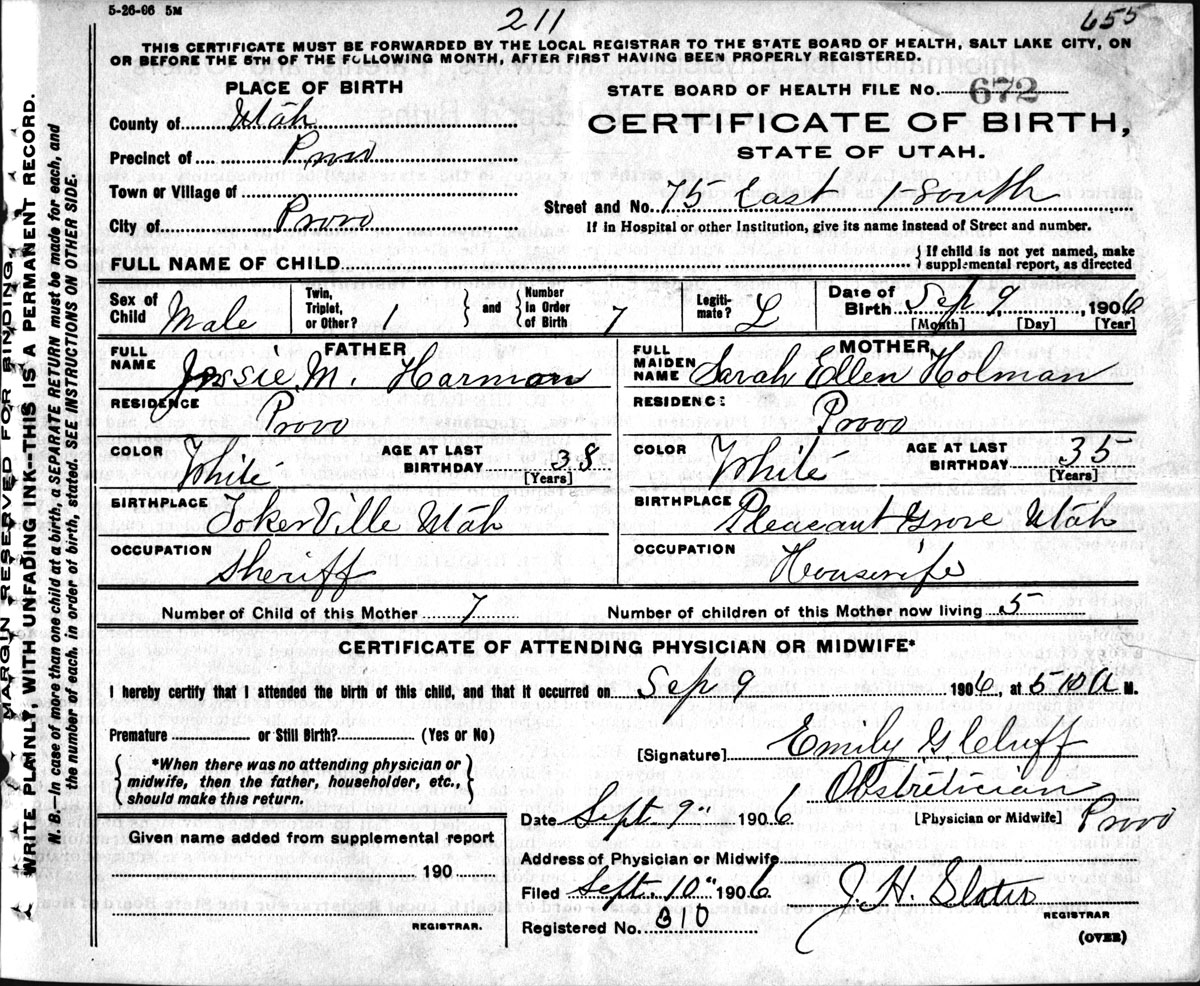 5-26-06 5M
211
655
THIS CERTIFICATE MUST BE FORWARDED BY THE LOCAL REGISTRAR TO THE STATE BOARD OF HEALTH, SALT LAKE CITY, ON
OR BEFORE THE 5TH OF THE FOLLOWING MONTH, AFTER FIRST HAVING BEEN PROPERLY REGISTERED.
PLACE OF BIRTH
County of Utah
Precinct of Provo
Town or Village of
City of Provo
STATE BOARD OF HEALTH FILE NO. 672
CERTIFICATE OF BIRTH,
STATE OF UTAH.
Street and No. 75 East 1-South
If in Hospital or other Institution, give its name instead of Street and number.
FULL NAME OF CHILD
{ If child is not yet named, make
supplemental report, as directed
Sex of Child Male
Twin, Triplet, or Other? 1 } and { Number in Order of Birth 7
Legiti-mate? L
Date of Birth Sep 9, 1906
[Month] [Day] [Year]
FATHER
FULL NAME Jessie M. Harmon
RESIDENCE Provo
COLOR White AGE AT LAST BIRTHDAY 38
[Years]
BIRTHPLACE TokerVille Utah
OCCUPATION Sheriff
MOTHER
FULL MAIDEN NAME Sarah Ellen Holman
RESIDENCE Provo
COLOR White AGE AT LAST BIRTHDAY 35
[Years]
BIRTHPLACE Pleasant Grove Utah
OCCUPATION Housewife
Number of Child of this Mother 7 Number of children of this Mother now living 5
CERTIFICATE OF ATTENDING PHYSICIAN OR MIDWIFE*
I hereby certify that I attended the birth of this child, and that it occurred on Sep 9 1906, at 510 A M.
Premature or Still Birth? (Yes or No)
{ *When there was no attending physician or
midwife, then the father, householder, etc.,
should make this return. }
[Signature] Emily G. Cluff
Obstritician
[Physician or Midwife]
Date Sept. 9" 1906
Provo
Given name added from supplemental report
190
REGISTRAR.
Address of Physician or Midwife
Filed Sept 10" 1906
J. H. Slater
REGISTRAR
Registered No. 310
(OVER)
MARGIN RESERVED FOR BINDING.
WRITE PLAINLY, WITH UNFADING INK—THIS IS A PERMANENT RECORD.
N. B.—In case of more than one child at a birth, a SEPARATE RETURN must be made for each, and
the number of each, in order of birth, stated. SEE INSTRUCTIONS ON OTHER SIDE.